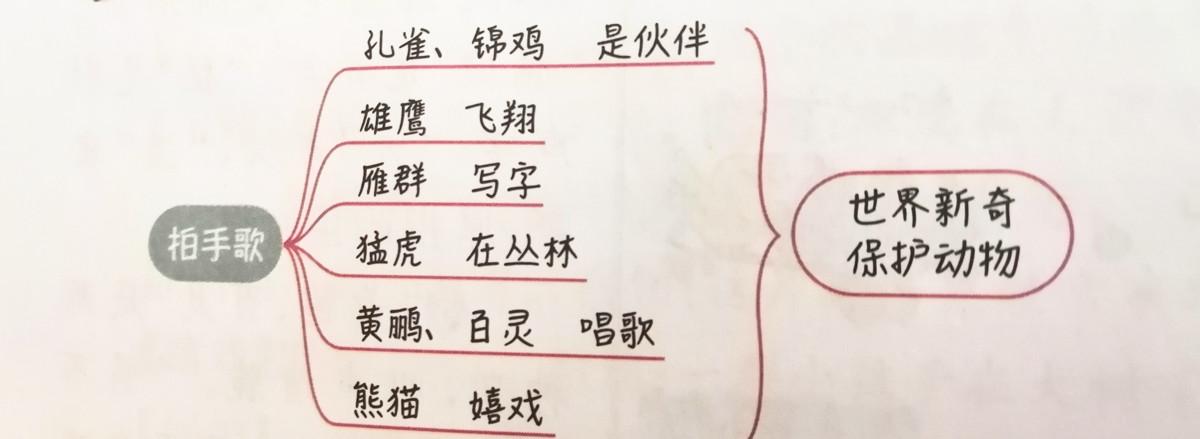 孔雀、锦鸡 是伙伴
雄鹰 飞翔
雁群 写字
猛虎 在丛林
黄鹏、百灵 唱歌
熊猫 嬉戏
拍手歌
世界新奇
保护动物